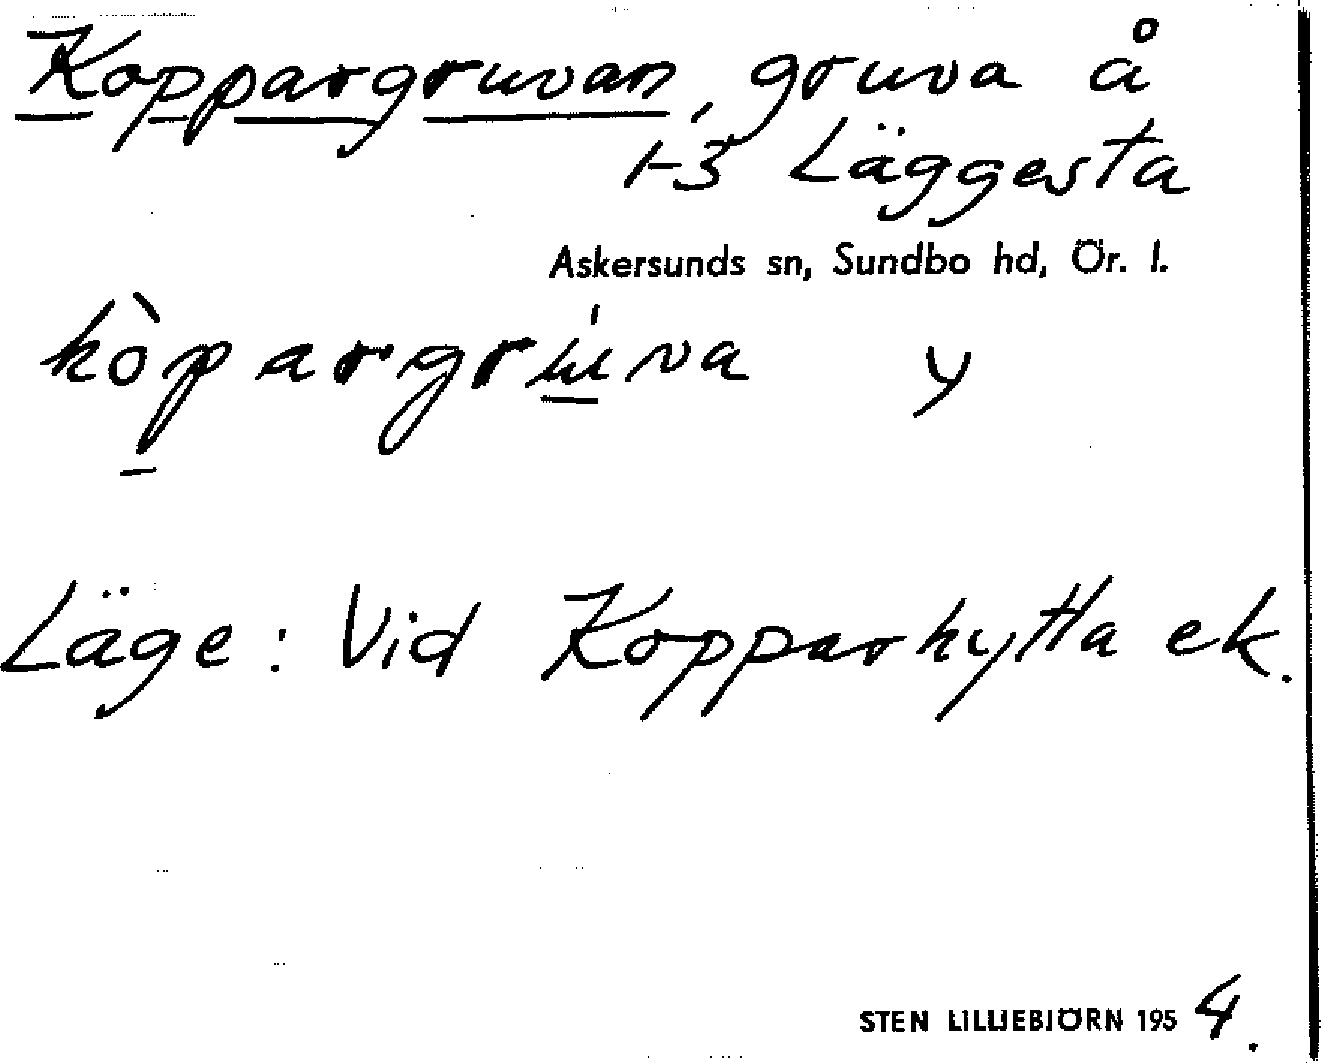 Koppargruvan, gruva å
1-3 Läggesta
Askersunds sn, Sundbo hd, Ör. l.
kòpargrúva y
Läge: Vid Kopparhytta ek.
STEN LILLIEBJÖRN 1954.